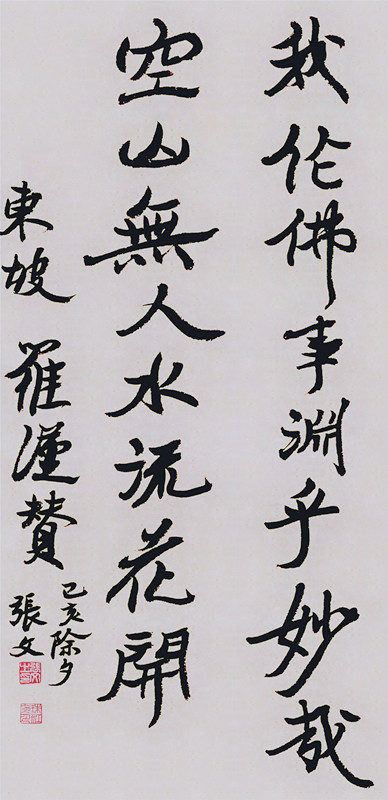 我作佛事淵乎妙哉
空山無人水流花開
東坡羅漢贊
己亥除夕
張文